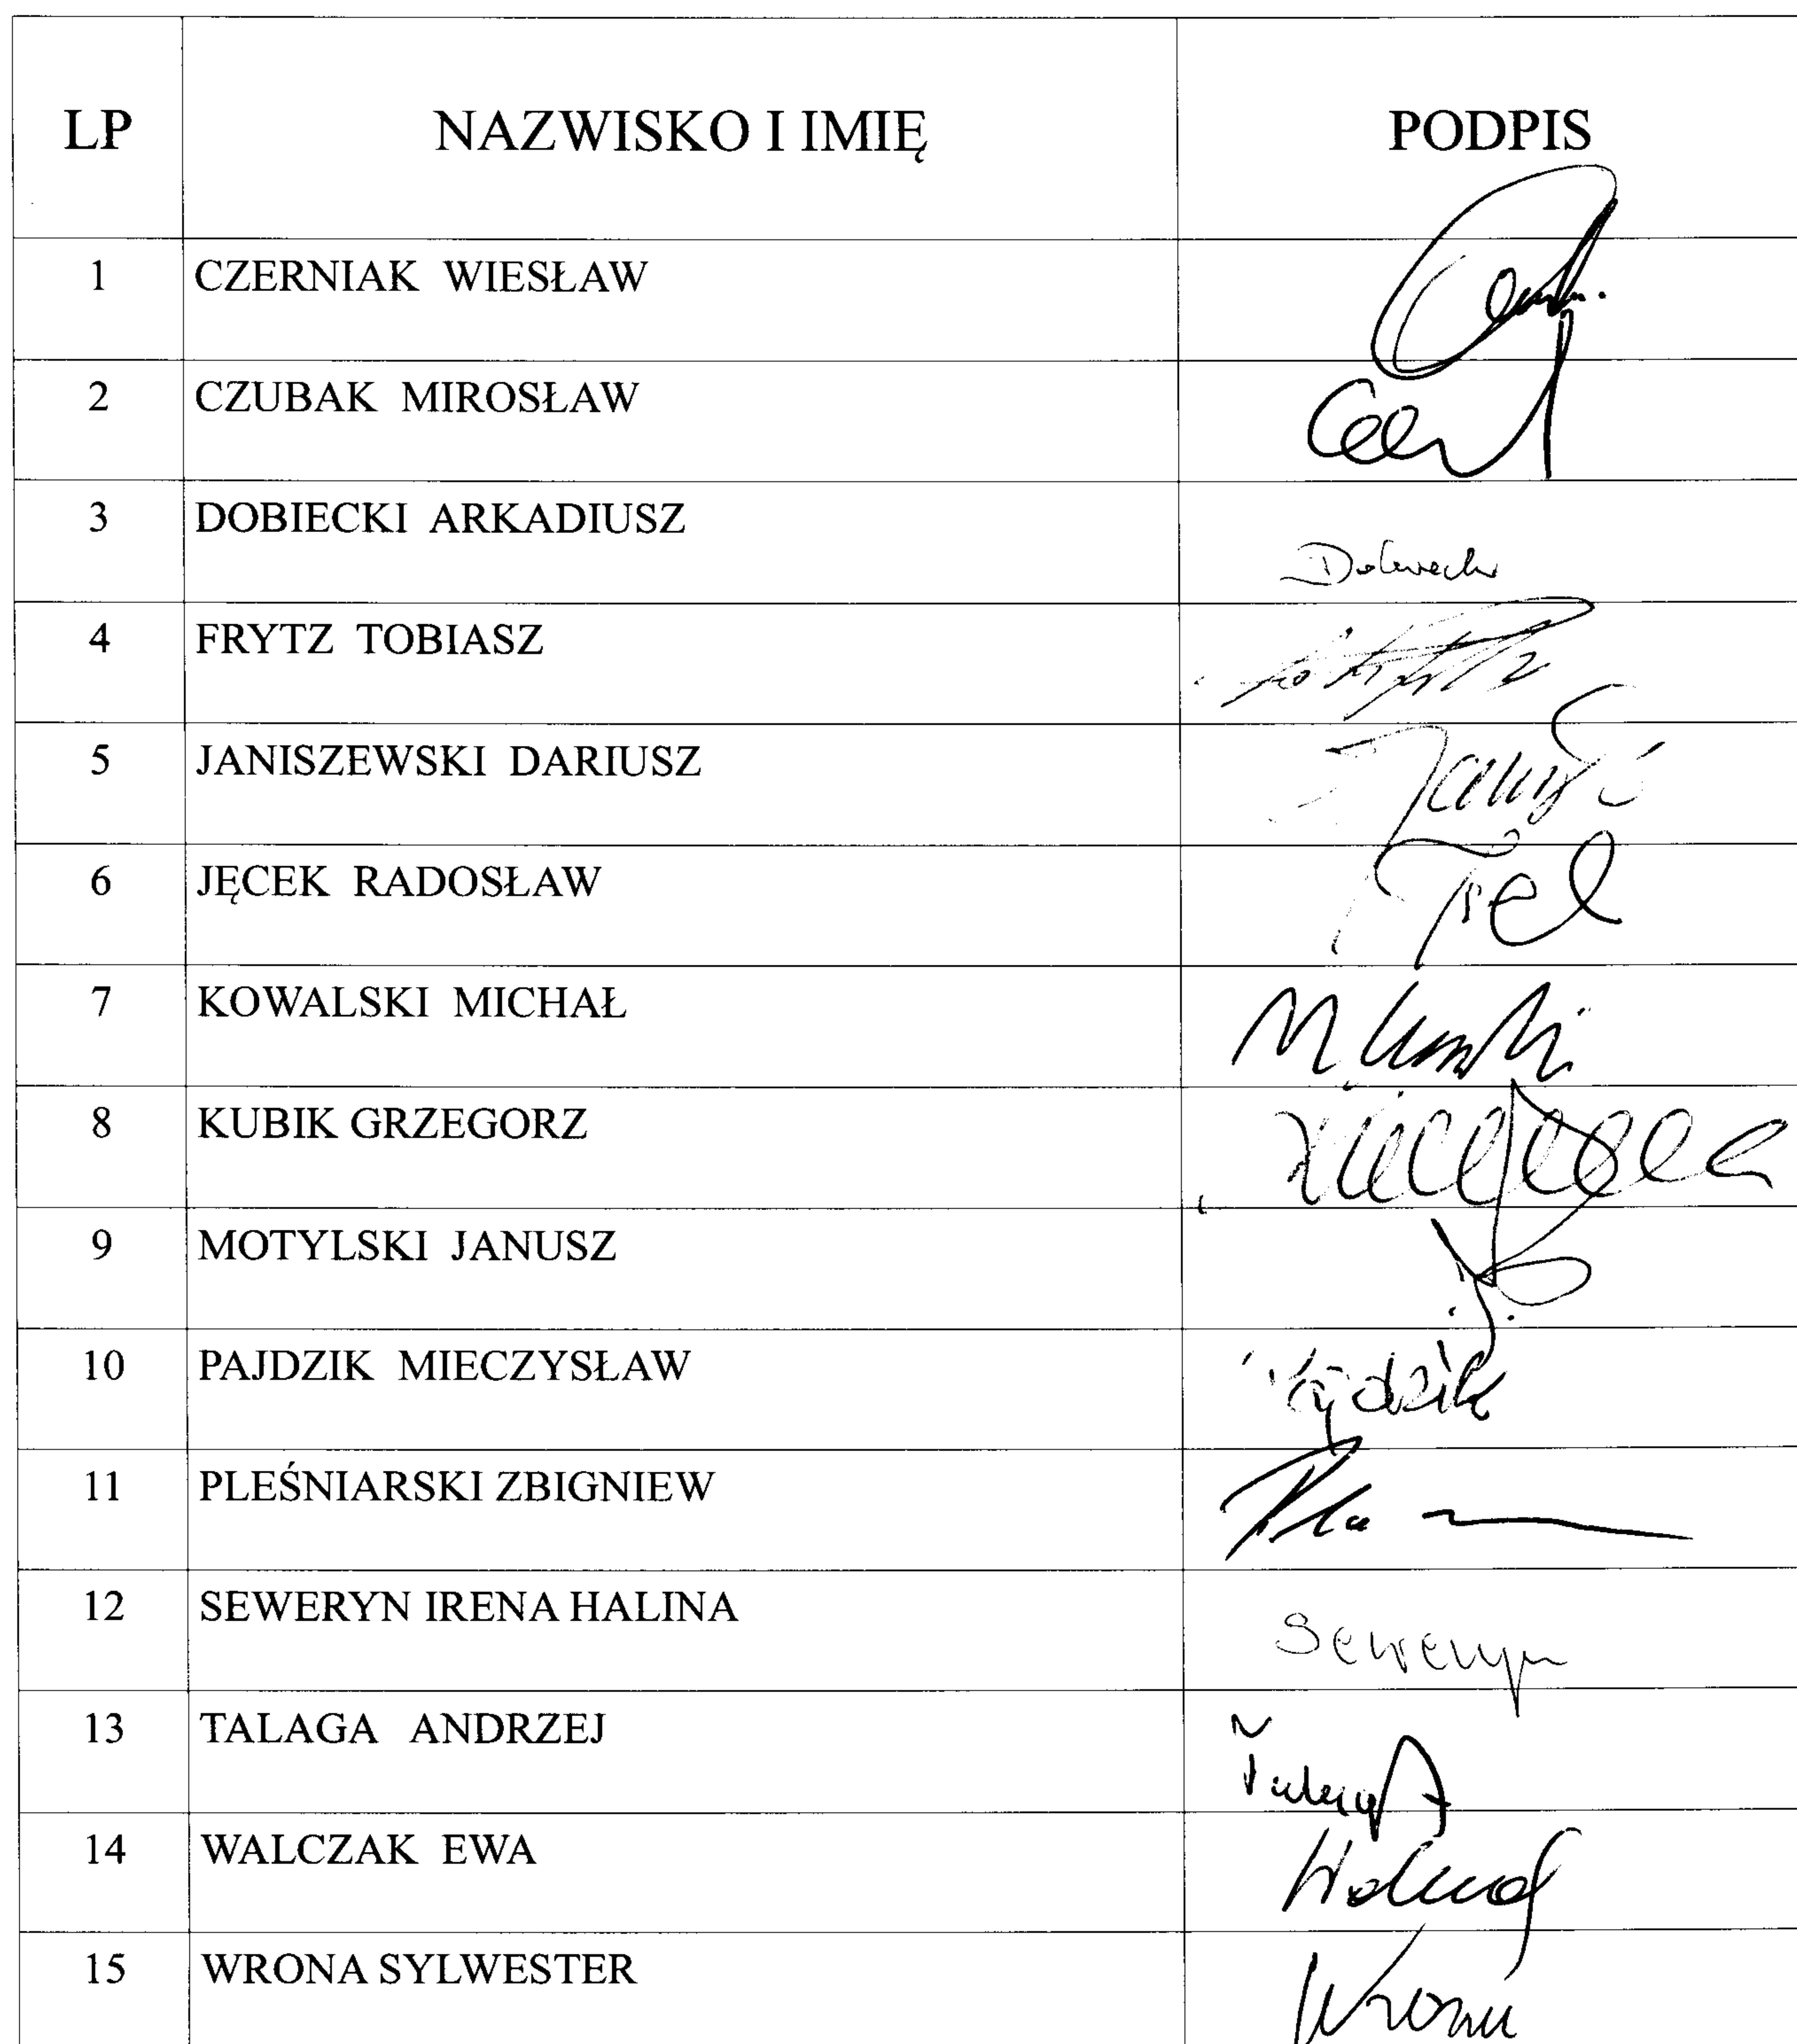 LP NAZWISKO I IMIĘ PODPIS
1 CZERNIAK WIESŁAW
2 CZUBAK MIROSŁAW
3 DOBIECKI ARKADIUSZ
4 FRYTZ TOBIASZ
5 JANISZEWSKI DARIUSZ
6 JĘCEK RADOSŁAW
7 KOWALSKI MICHAŁ
8 KUBIK GRZEGORZ
9 MOTYLSKI JANUSZ
10 PAJDZIK MIECZYSŁAW
11 PLEŚNIARSKI ZBIGNIEW
12 SEWERYN IRENA HALINA Seweryn
13 TALAGA ANDRZEJ
14 WALCZAK EWA
15 WRONA SYLWESTER Wrona